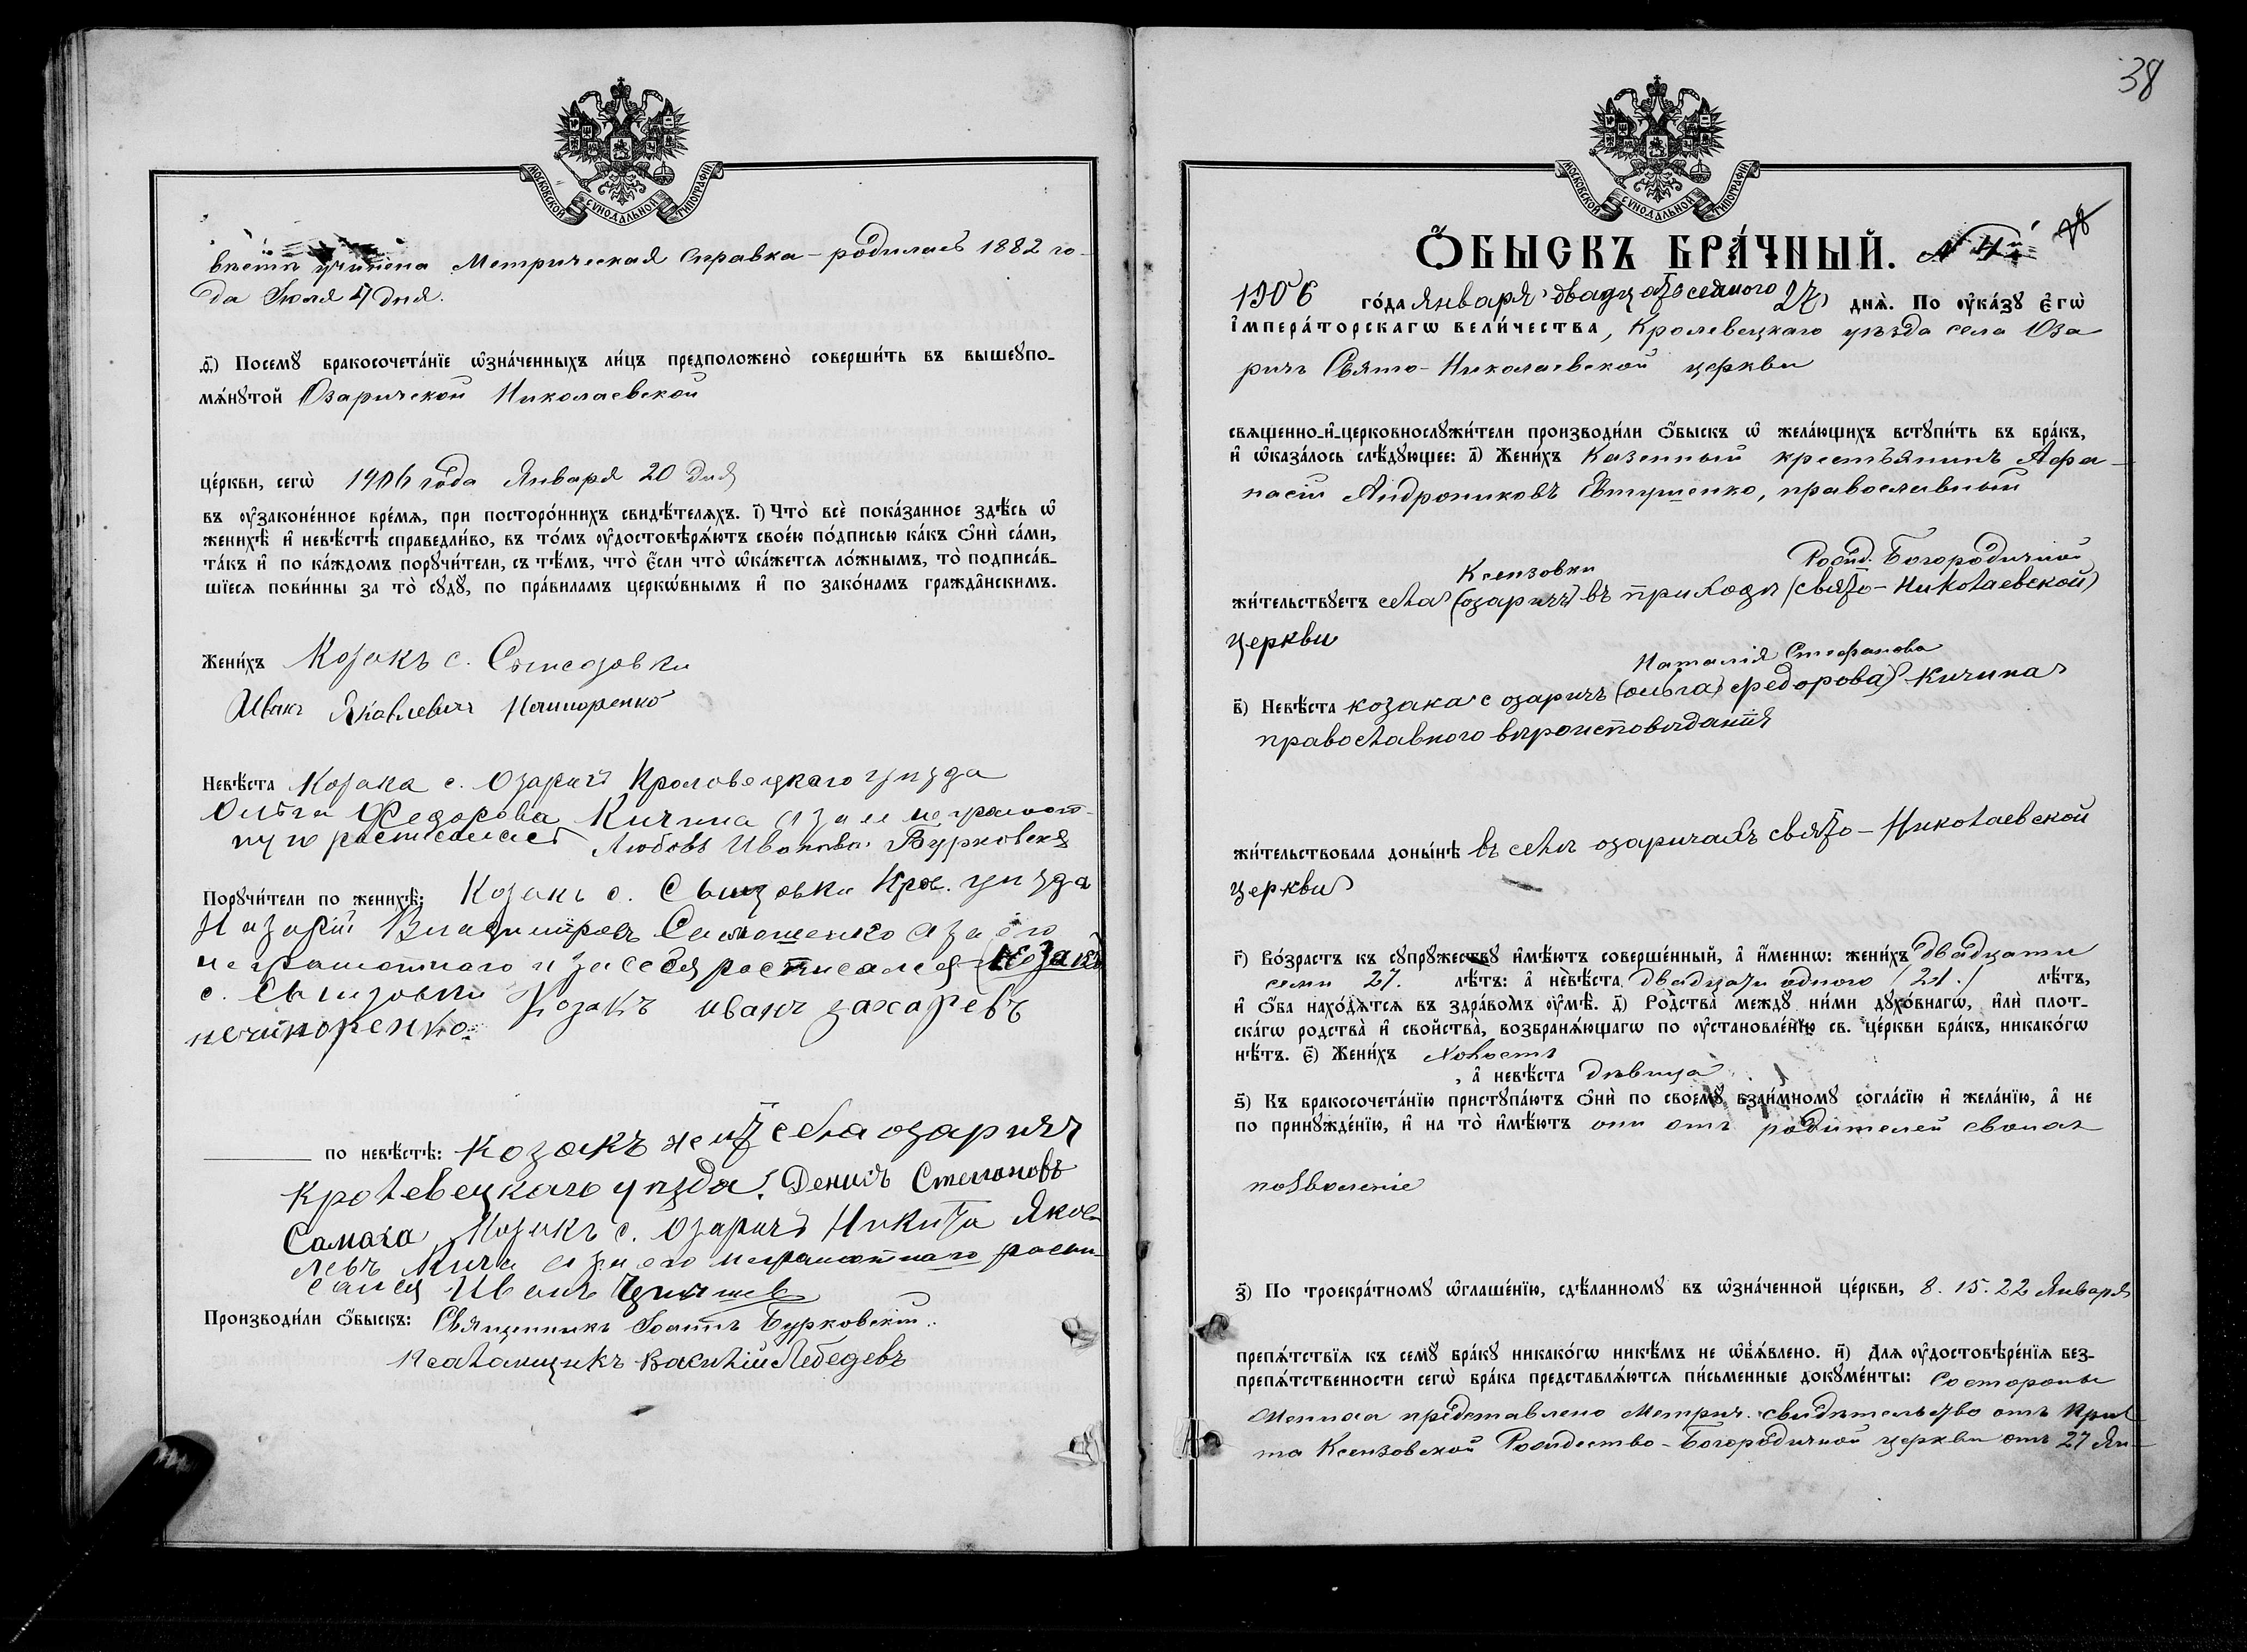 МОСКОВСКОЙ СѴНОДАЛЬНОЙ ТИПОГРАФІИ
учинена Метрическая справка – родилась 1882 го-
да Іюля 4 дня.
ѳ҃) Посемꙋ бракосочета́нїе ѡ҆зна́ченныхъ ли́цъ предположено̀ соверши́ть въ вышеꙋпо-
мѧ́нꙋтой Озаричской Николаевской
це́ркви, сегѡ̀ 1906 года Января 20 дня
въ ᲂу҆законе́нное вре́мѧ, при посторо́ннихъ свидѣ́телѧхъ. і҃) Что̀ всѐ пока́занное здѣ́сь ѡ҆
женихѣ̀ и҆ невѣ́стѣ справедли́во, въ то́мъ ᲂу҆достовѣрѧ́ютъ свое́ю по́дписью ка́къ ѻ҆нѝ са́ми,
та́къ и҆ по ка́ждомъ порꙋчи́тели, съ тѣ́мъ, что̀ є҆́сли что̀ ѡ҆ка́жетсѧ ло́жнымъ, то̀ подписа́в-
шїесѧ пови́нны за то̀ сꙋдꙋ̀, по пра́виламъ церкѡ́внымъ и҆ по зако́намъ гражда̂нскимъ.
Жени́хъ Козакъ с.
Иванъ Яковлевич Нечипоренко
Невѣ́ста Козака с. Озаричъ Кролевецкаго уѣзда
Ольга Федорова Кичина а за ее неграмот-
ную росписалась Любовь Иванова Бурковская
Порꙋчи́тели по женихѣ̀: Козакъ с. Крол. уѣзда
Назарій Владиміровъ а за его
неграмотнаго и за себя росписался (козакъ
с. Козакъ иванъ захаревъ
нечипоренко.
по невѣ́стѣ: Козакъ села озаричъ
Кролевецкаго уѣзда. Денисъ Степановъ
Самаха, Козакъ с. Озаричъ Никита Яков-
левъ Кича а за его неграмотнаго роспи-
сался Иванъ
Производи́ли ѻ҆́быскъ: Священникъ Іоаннъ Бурковскій.
Псаломщикъ Василій Лебедевъ
38
МОСКОВСКОЙ СѴНОДАЛЬНОЙ ТИПОГРАФІИ
Ѻ҆́БЫСКЪ БРА́ЧНЫЙ. N 4й
1906 го́да Января двадцатоседмого 27 днѧ̀. По ᲂу҆ка́зꙋ є҆гѡ̀
і҆мпера́торскагѡ вели́чества, Кролевецкаго уѣзда села Оза
ричъ Свято-Николаевской церкви
свѧщенно-и҆-церковнослꙋжи́тели производи́ли ѻ҆́быскъ ѡ҆ жела́ющихъ встꙋпи́ть въ бра́къ,
и҆ ѡ҆каза́лось слѣ́дꙋющее: а҃) Жени́хъ Казенный крестьянинъ Афа-
насій Андрониковъ Евтушенко, православный
Ксензовки Рожд. Богородичной
жи́тельствꙋетъ села (озаричъ) въ приходѣ (свято-Николаевской)
церкви
Наталія Стефанова
в҃) Невѣ́ста козака с озаричъ (ольга федорова) Кичина
православного вѣроисповѣданія
жи́тельствовала доны́нѣ въ селѣ озаричахъ свято-Николаевской
церкви
г҃) Во́зрастъ къ сꙋпрꙋ́жествꙋ и҆мѣ́ютъ соверше́нный, а҆ и҆́меннѡ: жени́хъ двадцати
семи 27. лѣ́тъ: а҆ невѣ́ста двадцати одного /21./ лѣ́тъ,
и҆ ѻ҆́ба нахо́дѧтсѧ въ здра́вомъ ᲂу҆мѣ̀. д҃) Ро́дства̀ междꙋ̀ ни́ми дꙋхо́внагѡ, и҆лѝ плот-
ска́гѡ родства̀ и҆ сво́йства̀, возбранѧ́ющагѡ по ᲂу҆становле́нїю св. це́ркви бра́къ, никако́гѡ
нѣ́тъ. є҃) Жени́хъ холостъ
, а҆ невѣ́ста дѣвица
ѕ҃) Къ бракосочета́нїю пристꙋпа́ютъ ѻ҆нѝ по своемꙋ̀ взаи́мномꙋ согла́сїю и҆ жела́нїю, а҆ не
по принꙋжде́нїю, и҆ на то̀ и҆мѣ́ютъ они отъ родителей своихъ
позволеніе
з҃) По троекра́тномꙋ ѡ҆глаше́нїю, сдѣ́ланномꙋ въ ѡ҆зна́ченной це́ркви, 8. 15. 22 Января
препѧ́тствїѧ къ семꙋ̀ бра́кꙋ никако́гѡ никѣ́мъ не ѡ҆б̾ѧ́влено. и҃) Длѧ ᲂу҆достовѣре́нїѧ без-
препѧ́тственности сегѡ̀ бра́ка представлѧ́ютсѧ пи́сьменные докꙋме́нты: Со стороны
жениха представлено Метрич. свидѣтельство отъ При
та Ксензовской Рождество-Богородичной церкви отъ 27 Ян-